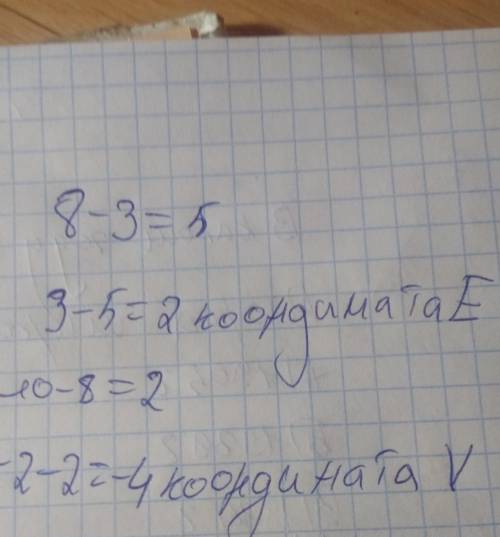 8-3=5
3-5=2 координата E
10-8=2
-2-2=-4 координата V